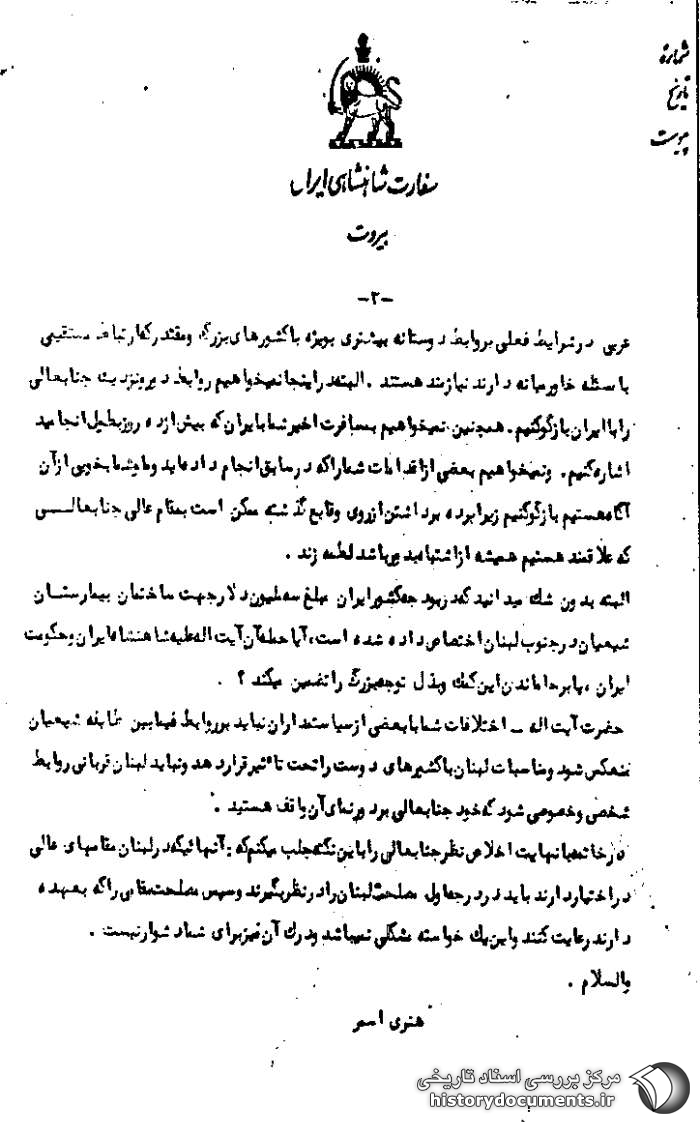 شماره
تاریخ
پیوست
سفارت شاهنشاهی ایران
بیروت
-۲-
عربی در شرایط فعلی بروابط دوستانه بیشتری بویژه با کشورهای بزرگ و مقتدر که ارتباط مستقیمی
با مسئله خاورمیانه دارند نیازمند هستند . البته در اینجا نمیخواهیم روابط دیرونزدیک جنابعالی
را با ایران بازگو کنیم . همچنین نمیخواهیم بمسافرت اخیر شما بایران که بیش از ده روز بطول انجامید
اشاره کنیم . ونمیخواهیم بعضی از اقدامات شما را که در سابق انجام داده اید وما وشما بخوبی از آن
آگاه هستیم بازگو کنیم زیرا پرده برداشتن از روی وقایع گذشته ممکن است بمقام عالی جنابعالــی
که علاقمند هستیم همیشه از اشتباهات بدور باشد لطمه زند .
البته بدون شک میدانید که در بودجه کشور ایران مبلغ سه ملیون دلار جهت ساختمان بیمارستــان
شیعیان در جنوب لبنان اختصاص داده شده است ، آیا حمله آن آیت اله علیه شاهنشاه ایران وحکومت
ایران ، پابرجا ماندن این کمک وبذل توجه بزرگ را تضمین میکند ؟ .
حضرت آیت اله ــ اختلافات شما با بعضی از سیاستمداران نباید بر روابط فیمابین طایفه شیعیان
منعکس شود ومناسبات لبنان با کشورهای دوست را تحت تاثیر قرار دهد ونباید لبنان قربانی روابط
شخصی وخصوصی شود که خود جنابعالی بر درستی آن واقف هستید .
در خاتمه با نهایت اخلاص نظر جنابعالی را باین نکته جلب میکنم که : آنهائیکه در لبنان مقامهای عالی
در اختیار دارند باید در درجه اول مصلحت لبنان را در نظر بگیرند وسپس مصلحت مقامی را که بعهده
دارند رعایت کنند واین یک خواسته مشکلی نمیباشد ودرک آن نیز برای شما دشوار نیست .
والسلام .
هنری اسمر
مرکز بررسی اسناد تاریخی
historydocuments.ir